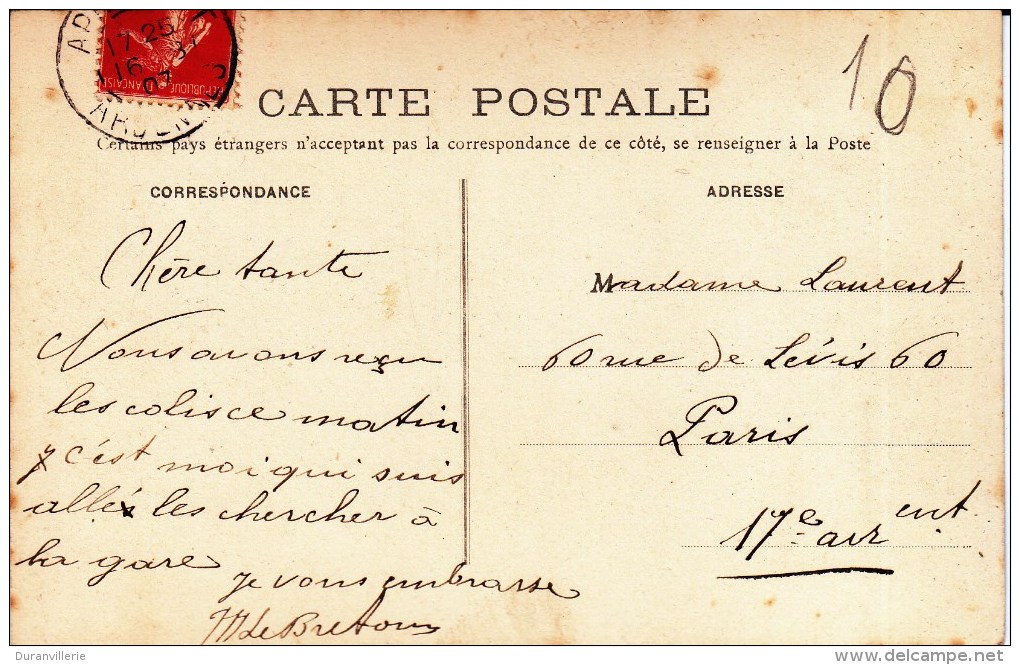 17 25
16 3
07
ARDENNES
RÉPUBLIQUE FRANÇAISE
10
CARTE POSTALE
Certains pays étrangers n'acceptent pas la correspondance de ce côté, se renseigner à la Poste
CORRESPONDANCE
Chère tante
Nous avons reçu
les colis ce matin
c'est moi qui suis
allés les chercher à
la gare
je vous embrasse
M Le Bretons
ADRESSE
Madame Laurent
60 rue de Lévis 60
Paris
17e arr ent
Duranvillerie
www.delcampe.net